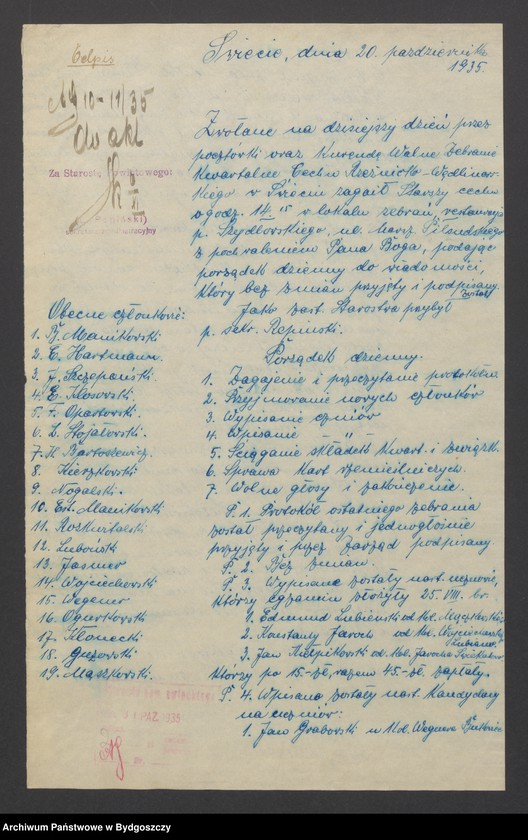 Odpis
Świecie, dnia 20. października
1935.
10-11/35
do akt
Za Starostę Powiatowego:
Zwołane na dzisiejszy dzień przez
pocztówki oraz Kurendę Walne Zebranie
Kwartalne Cechu Rzeźnicko-Wędliniar-
skiego w Świeciu zagaił Starszy cechu
o godz. 14.15 w lokalu zebrań, restauracja
p. Szydłowskiego, ul. Marsz. Piłsudskiego
z pochwaleniem Pana Boga, podając
porządek dzienny do wiadomości,
który bez zmian przyjęty i podpisany
został
Jako zast. Starostwa przybył
p. sekr.
Porządek dzienny.
1. Zagajenie i przeczytanie protokółu.
2. Przyjmowanie nowych członków
3. Wypisanie uczniów
4. Wpisanie -"-
5. Ściąganie składek Kwart. i związk.
6. Sprawa Kart rzemieślniczych.
7. Wolne głosy i zakończenie.
P. 1. Protokół ostatniego zebrania
został przeczytany i jednogłośnie
przyjęty i przez Zarząd podpisany.
P. 2. Bez zmian.
P. 3. Wypisane zostały nast. uczniowie,
którzy egzamin złożyły 25. VIII. br.
1. Edmund Lubieński od kol.
2. Konstanty Jaroch od kol. Wojciechowski
3. Jan od kol. Jarocha
którzy po 15.-zł, razem 45.-zł zapłaty.
P. 4. Wpisano zostały nast. kandydaty
na uczniów:
1. Jan Grabowski u kol. Wegnera
Obecne członkowie:
1. B. Manikowski
2. E. Hartmann.
3. J. Szczepański.
4. E. Kłosowski.
5. F. Opartowski.
6. L. Stojałowski.
7. H. Bartosiewicz.
8. Kieszkowski
9. Nogalski.
10. Ed. Manikowski
11. Rozkwitalski
12. Lubański
13. Jasmer
14. Wojciechowski
15. Wegener
16. Ogurkowski
17. Kłonecki
18. Guzowski
19. Maszkowski.
PAZ. 1935
Archiwum Państwowe w Bydgoszczy